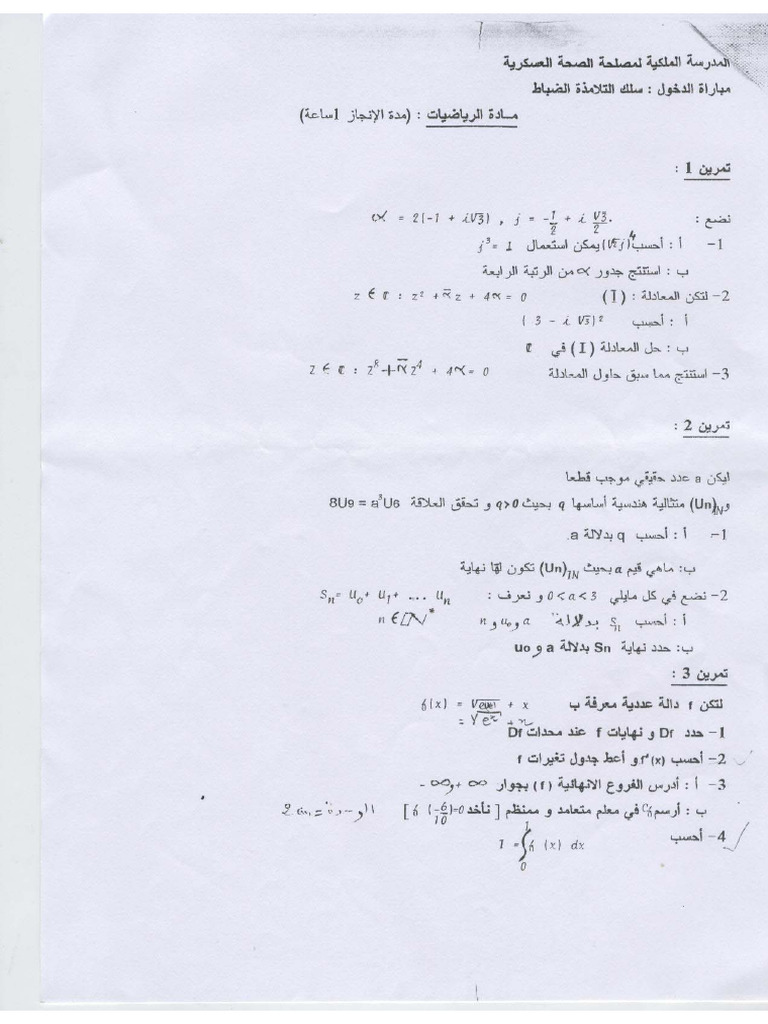 المدرسة الملكية لمصلحة الصحة العسكرية
مباراة الدخول : سلك التلامذة الضباط
مـادة الرياضيات : (مدة الإنجاز 1ساعة)
تمرين 1 :
نضع : α = 2(-1 + i√3) , j = -1/2 + i √3/2.
1- أ : أحسب (√2j)^4 يمكن استعمال j^3 = 1
ب : استنتج جدور α من الرتبة الرابعة
2- لتكن المعادلة : (I) z ∈ ℂ : z² + ᾱz + 4α = 0
أ : أحسب (3 - i√3)²
ب : حل المعادلة (I) في ℂ
3- استنتج مما سبق حاول المعادلة z ∈ ℂ : z^8 + ᾱz^4 + 4α = 0
تمرين 2 :
ايكن a عدد حقيقي موجب قطعا
و(Un)ℕ متتالية هندسية أساسها q بحيث q>0 و تحقق العلاقة 8U9 = a³U6
1- أ : أحسب q بدلالة a.
ب: ماهي قيم a بحيث (Un)ℕ تكون لها نهاية
2- نضع في كل مايلي 0<a<3 و نعرف : Sn= u0+ u1+ ... un
أ : أحسب Sn بدلالة a وu0 وn n ∈ ℕ*
ب: حدد نهاية Sn بدلالة a و uo
تمرين 3 :
لتكن f دالة عددية معرفة ب f(x) = + x
= √e^x + x
1- حدد Df و نهايات f عند محدات Df
2- أحسب f'(x) و أعط جدول تغيرات f
3- أ : أدرس الفروع الانهائية (f) بجوار +∞ و -∞
ب : أرسم Cf في معلم متعامد و ممنظم [ نأخد f(-6/10)=0 ]
4- أحسب I = ∫₀¹ f(x) dx